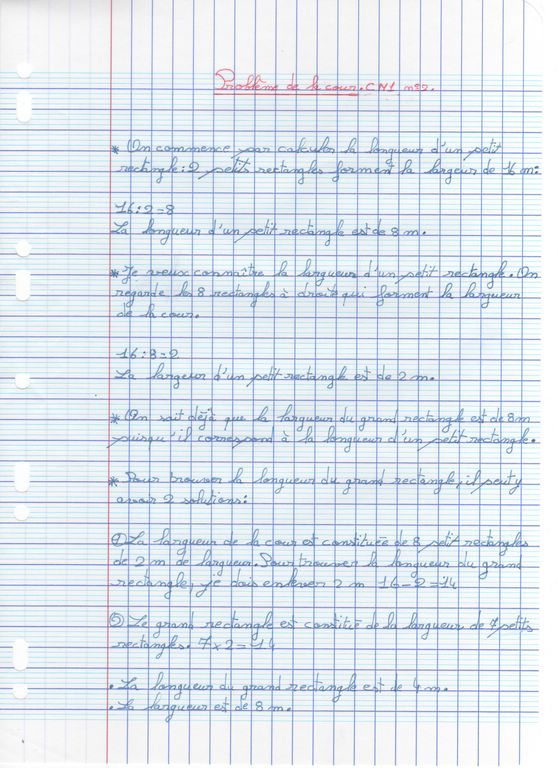 Problème de la cour. CN1 n°2.
* On commence par calculer la longueur d'un petit
rectangle : 2 petits rectangles forment la largeur de 16 m :
16 : 2 = 8
La longueur d'un petit rectangle est de 8 m.
* Je veux connaître la largueur d'un petit rectangle. On
regarde les 8 rectangles à droite qui forment la largueur
de la cour.
16 : 8 = 2
La largeur d'un petit rectangle est de 2 m.
* On sait déjà que la largueur du grand rectangle est de 8m
puisqu'il correspond à la longueur d'un petit rectangle.
* Pour trouver la longueur du grand rectangle, il peut y
avoir 2 solutions :
① La largueur de la cour est constituée de 8 petit rectangles
de 2 m de largueur. Pour trouver la longueur du grand
rectangle, je dois enlever 2 m 16 - 2 = 14
② Le grand rectangle est constitué de la largueur de 7 petits
rectangles. 7 x 2 = 14
. La longueur du grand rectangle est de 4 m.
. La largueur est de 8 m.